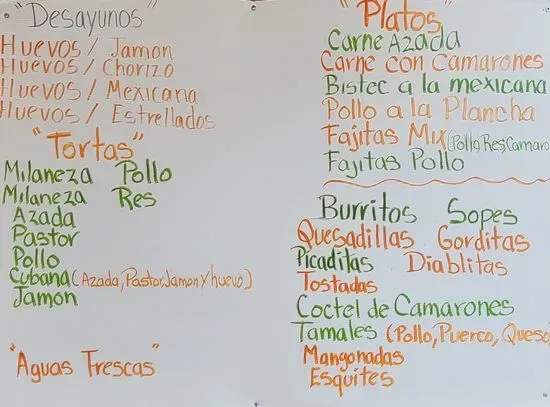 "Desayunos"
Huevos / Jamon
Huevos / Chorizo
Huevos / Mexicana
Huevos / Estrellados
"Tortas"
Milaneza Pollo
Milaneza Res
Azada
Pastor
Pollo
Cubana (Azada, Pastor, Jamon y huevo)
Jamon
"Aguas Frescas"
"Platos"
Carne Azada
Carne con Camarones
Bistec a la mexicana
Pollo a la Plancha
Fajitas Mix (Pollo, Res, Camaro
Fajitas Pollo
Burritos Sopes
Quesadillas Gorditas
Picaditas Diablitas
Tostadas
Coctel de Camarones
Tamales (Pollo, Puerco, Queso
Mangonadas
Esquites